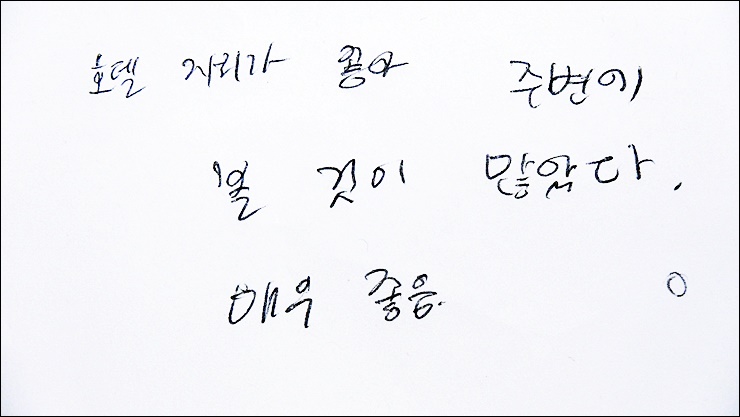 호텔 자리가 좋아 주변에
볼 것이 많았다.
매우 좋음.